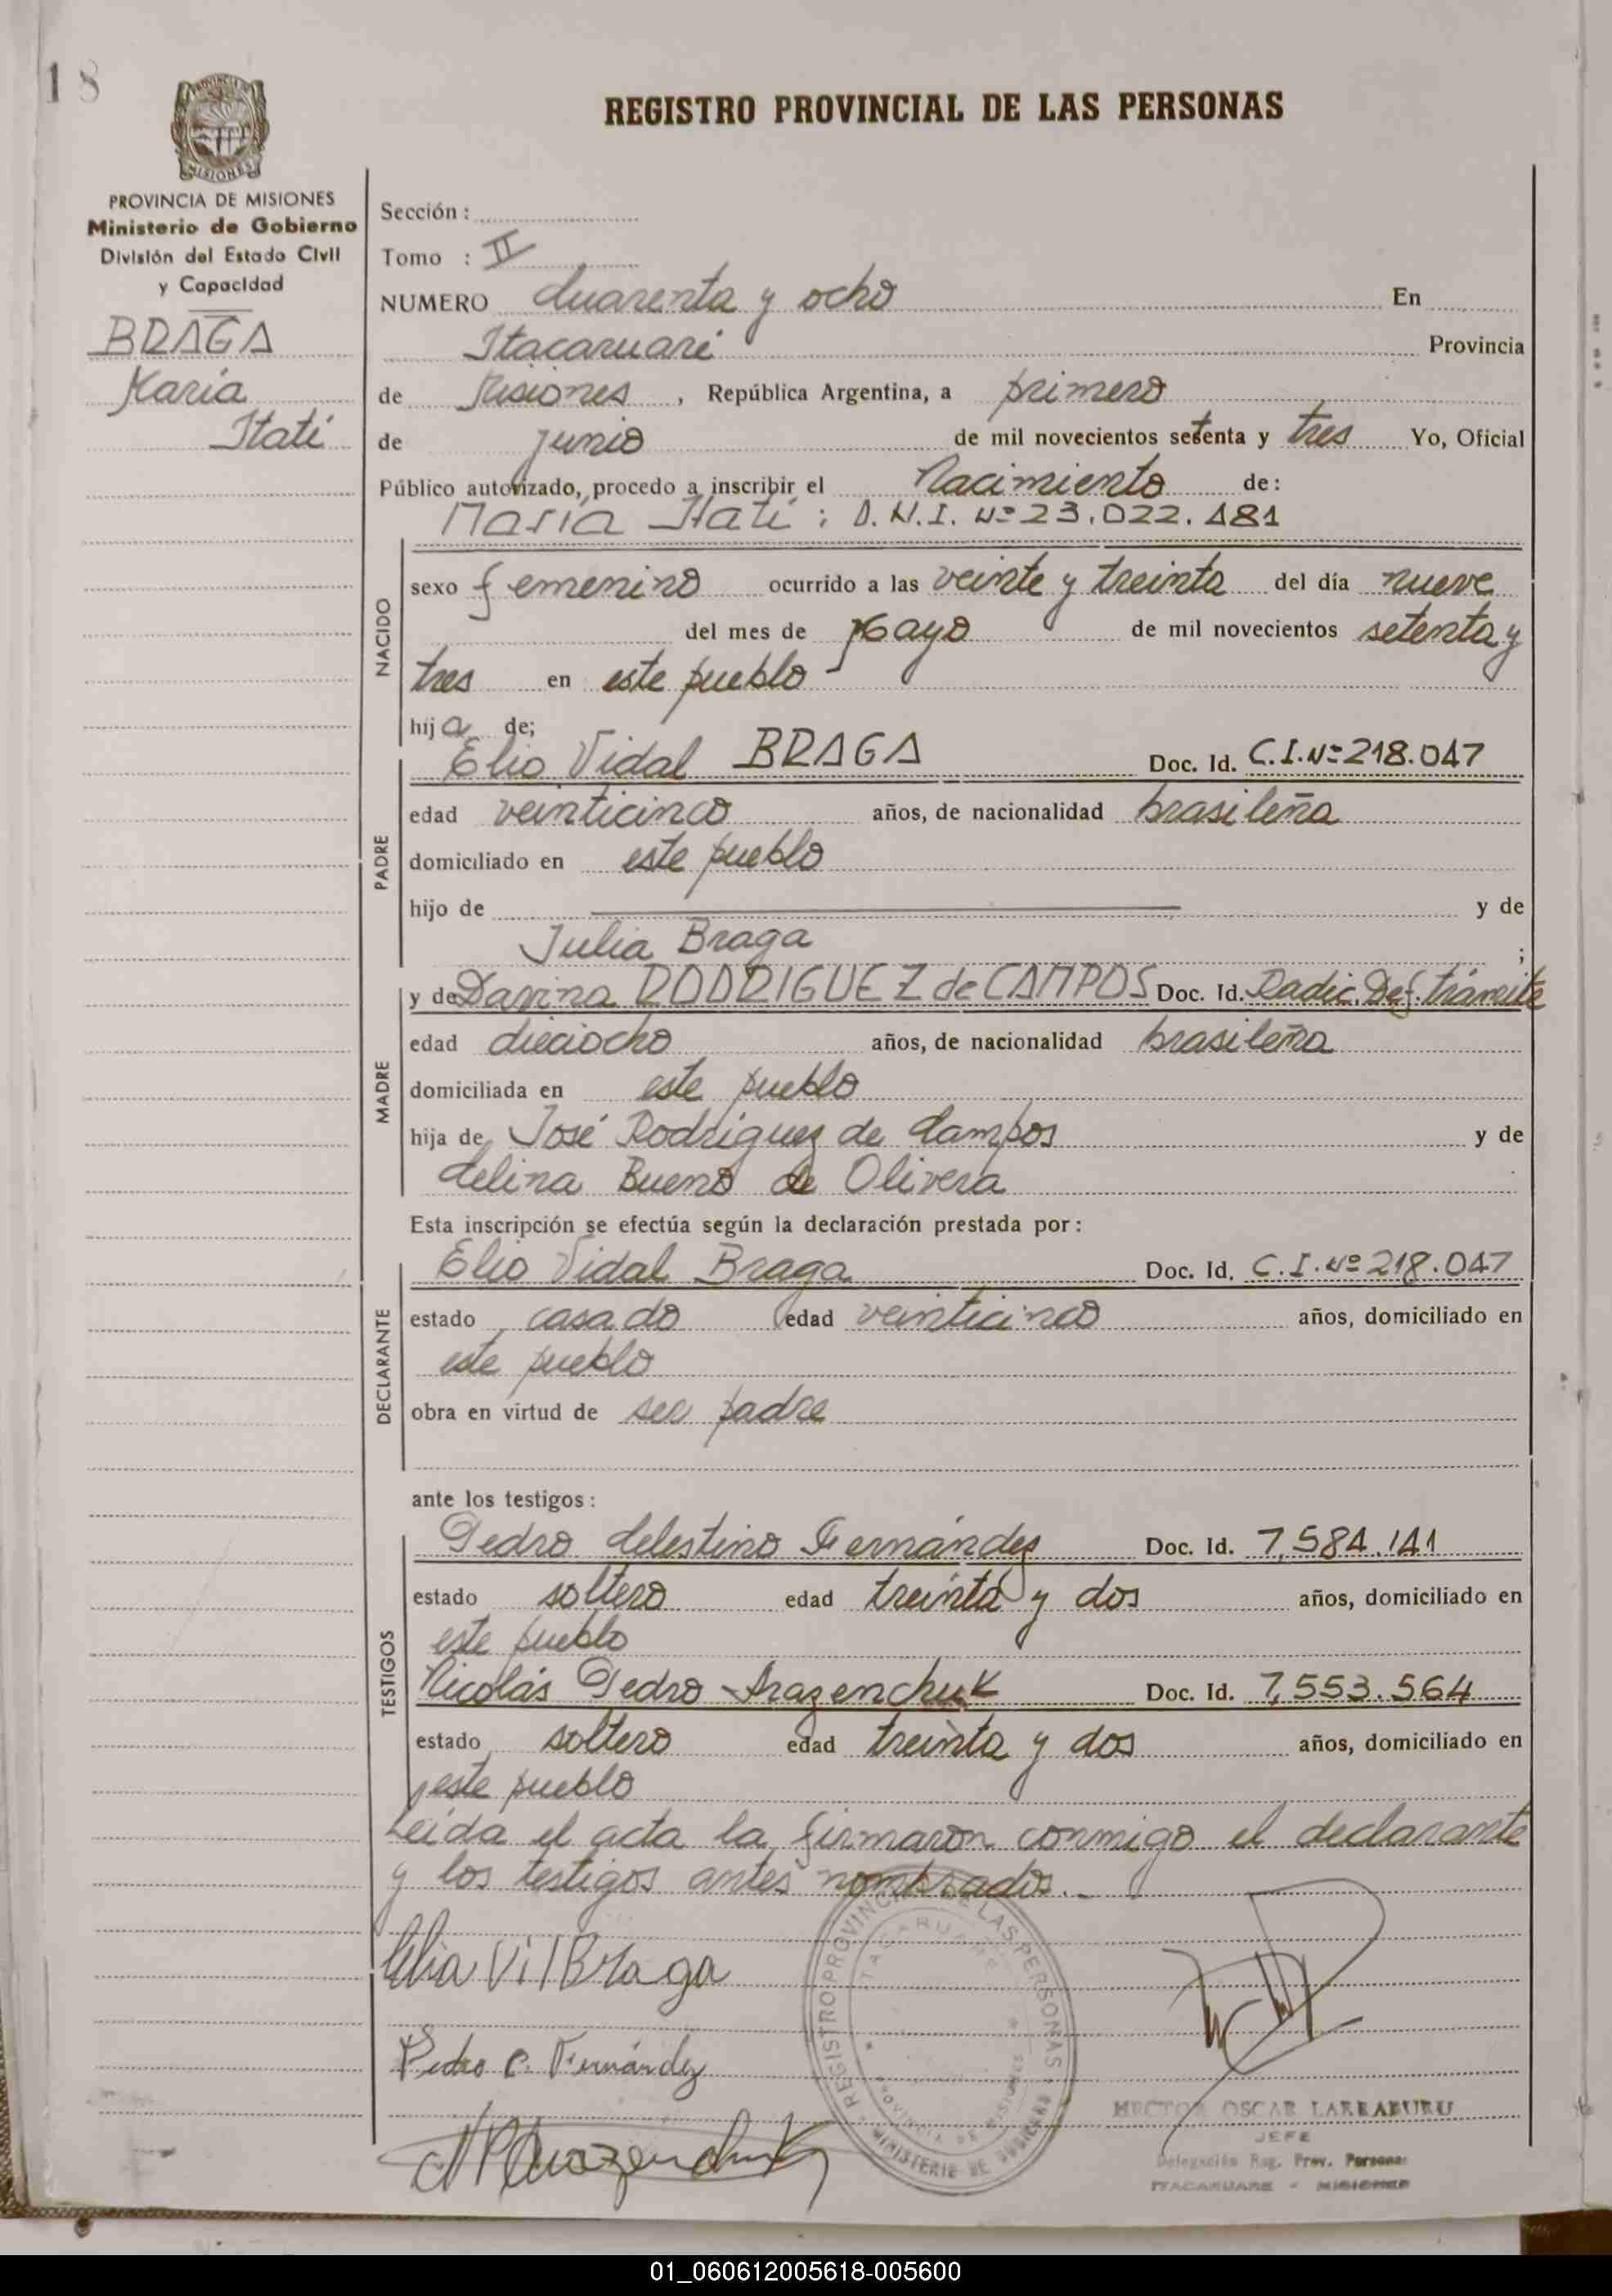 18
REGISTRO PROVINCIAL DE LAS PERSONAS
PROVINCIA DE MISIONES
Ministerio de Gobierno
División del Estado Civil
y Capacidad
BRAGA
María
Itatí
Sección :
Tomo : II
NUMERO Cuarenta y ocho En
Itacaruaré Provincia
de Misiones , República Argentina, a primero
de junio de mil novecientos setenta y tres Yo, Oficial
Público autorizado, procedo a inscribir el Nacimiento de:
María Itatí : D.N.I. Nº 23.022.481
NACIDO
sexo femenino ocurrido a las veinte y treinta del día nueve
del mes de Mayo de mil novecientos setenta y
tres en este pueblo
hija de;
Elio Vidal BRAGA Doc. Id. C.I.Nº 218.047
PADRE
edad veinticinco años, de nacionalidad brasileña
domiciliado en este pueblo
hijo de y de
Julia Braga ;
y de Darina RODRIGUEZ de CAMPOS Doc. Id. Radic. Def. trámite
MADRE
edad dieciocho años, de nacionalidad brasileña
domiciliada en este pueblo
hija de José Rodriguez de Campos y de
Celina Bueno de Olivera
Esta inscripción se efectúa según la declaración prestada por :
Elio Vidal Braga Doc. Id. C.I.Nº 218.047
DECLARANTE
estado casado edad veinticinco años, domiciliado en
este pueblo
obra en virtud de ser padre
ante los testigos :
Pedro Celestino Fernández Doc. Id. 7.584.141
TESTIGOS
estado soltero edad treinta y dos años, domiciliado en
este pueblo
Nicolás Pedro Arazenchuk Doc. Id. 7.553.564
estado soltero edad treinta y dos años, domiciliado en
este pueblo
Leída el acta la firmaron conmigo el declarante
y los testigos antes nombrados.-
Braga
Pedro C. Fernández
REGISTRO PROVINCIAL DE LAS PERSONAS
ITACARUARE
PROVINCIA DE MISIONES
MINISTERIO DE GOBIERNO
HECTOR OSCAR LARRABURU
JEFE
Delegación Reg. Prov. Personas
ITACARUARE - MISIONES
01_060612005618-005600